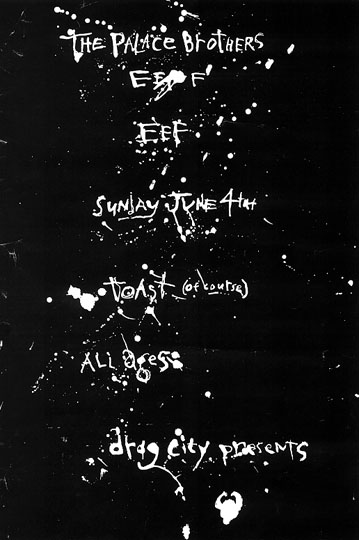 THE PALACE BROTHERS
EEF
SUNDAY JUNE 4TH
TOAST (of course)
ALL AgeSs
drag city presents